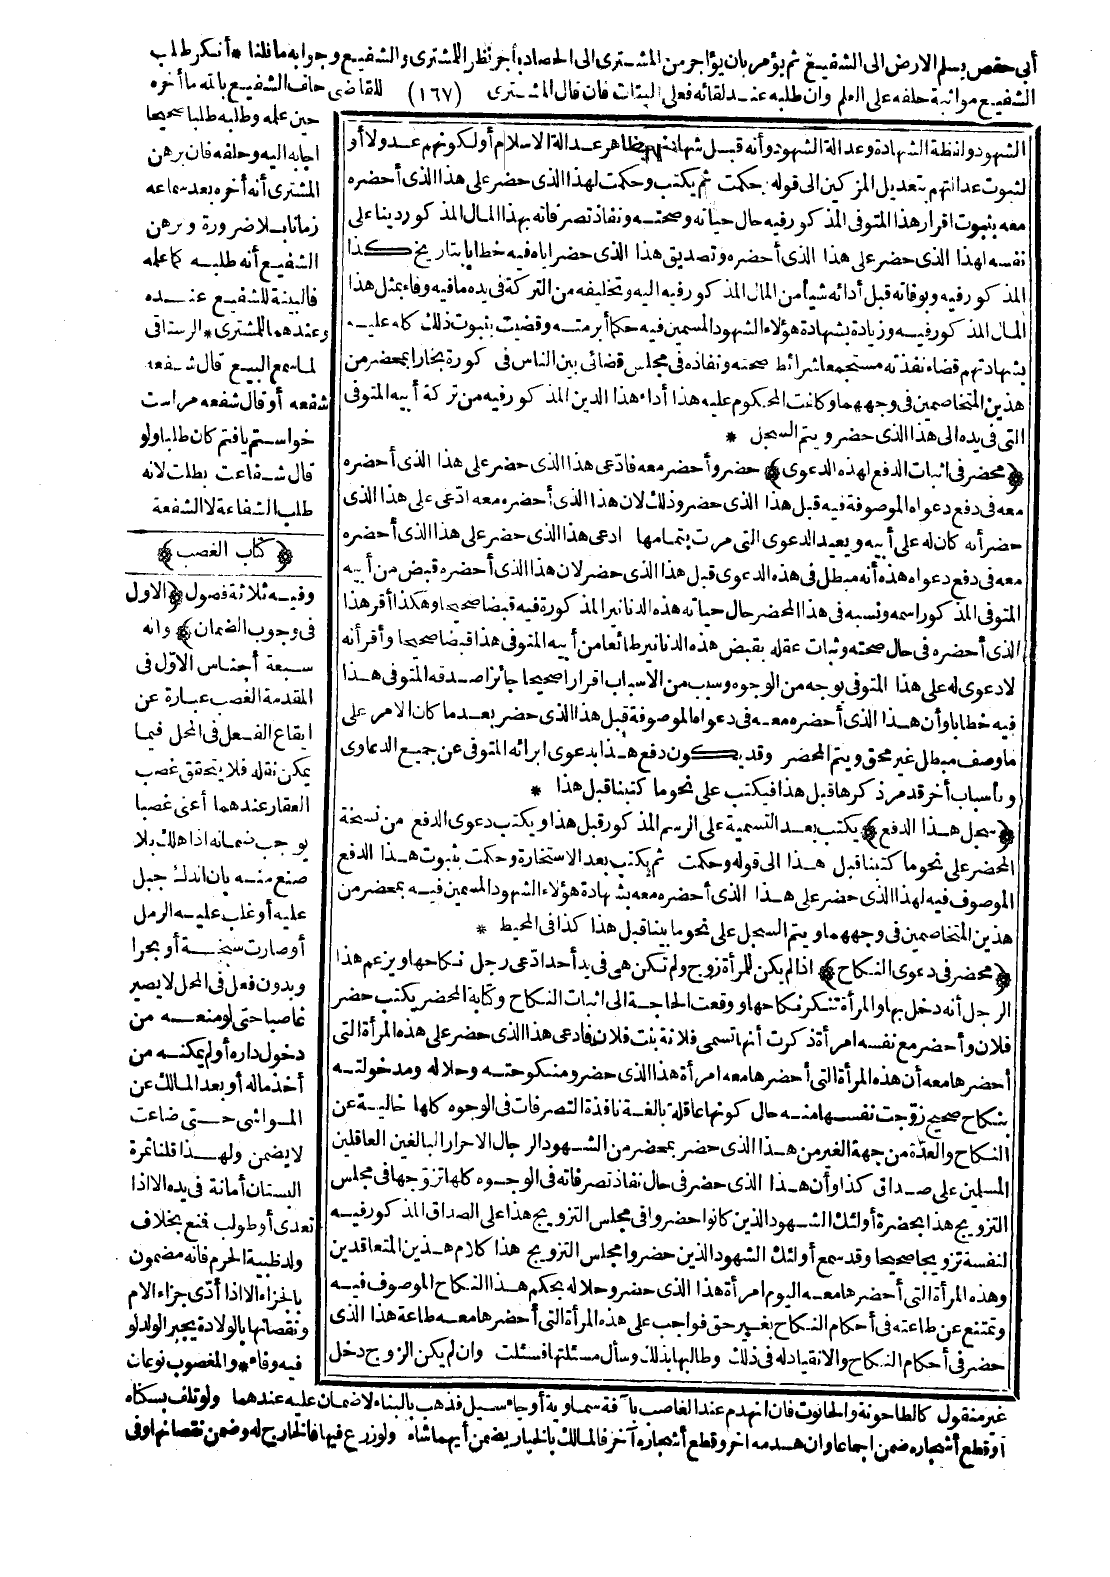 أبى حفص يسلم الارض الى الشفيع ثم يؤمر بان يؤاجر من المشترى الى الحصاد بأجر نظر اللمشترى والشفيع وجوابه ما قلنا * أنكر طلب
الشفيع مواثبة حلفه على العلم وان طلبه عند لقائه فعلى البتات فان قال المشترى (١٦٧) للقاضى حلف الشفيع بالله ما أخره
حين علمه وطلبه طلبا صحيحا
اجابه اليه وحلفه فان برهن
المشترى أنه أخره بعد سماعه
زمانا بلا ضرورة وبرهن
الشفيع أنه طلبه كما علمه
فالبينة للشفيع عنده
وعندهما للمشترى * الرستاقى
لما سمع البيع قال شفعه
شفعه أو قال شفعه مراست
خواستم يافتم كان طلبا ولو
قال شفاعت بطلت لانه
طلب الشفاعة لا الشفعة
﴿ كتاب الغصب ﴾
وفيه ثلاثة فصول ﴿ الاول
فى وجوب الضمان ﴾ وانه
سبعة أجناس الاول فى
المقدمة الغصب عبارة عن
ايقاع الفعل فى المحل فيما
يمكن نقله فلا يتحقق غصب
العقار عندهما أعنى غصبا
يوجب ضمانه اذا هلك بلا
صنع منه بان اندك جبل
عليه أو غاب عليه الرمل
أو صارت سبخة أو بحرا
وبدون فعل فى المحل لا يصير
غاصبا حتى لو منعه من
دخول داره أو لم يمكنه من
أخذ ماله أو بعد المالك عن
المواشى حتى ضاعت
لا يضمن ولهذا قلنا ثمرة
البستان أمانة فى يده الا اذا
تعدى أو طولب فمنع بخلاف
ولد ظبية الحرم فانه مضمون
بالجزاء الا اذا أدى جزاء الام
ونقصانها بالولادة يجبر الولد لو
فيه وفاء * والمغصوب نوعان
الشهود ولفظة الشهادة وعدالة الشهود وأنه قبل شهادتهم بظاهر عدالة الاسلام أو لكونهم عدولا أو
لثبوت عدالتهم بتعديل المزكين الى قوله حكمت ثم يكتب وحكمت لهذا الذى حضر على هذا الذى أحضره
معه بثبوت اقرار هذا المتوفى المذكور فيه حال حياته وصحته ونفاذ تصرفاته بهذا المال المذكور دينا على
نفسه لهذا الذى حضر على هذا الذى أحضره وتصديق هذا الذى حضر اياه فيه خطابا بتاريخ كذا
المذكور فيه وبوفاته قبل أدائه شيأ من المال المذكور فيه اليه وتخليفه من التركة فى يده ما فيه وفاء بمثل هذا
المال المذكور فيه وزيادة بشهادة هؤلاء الشهود المسمين فيه حكما أبرمته وقضيت بثبوت ذلك كله عليه
بشهادتهم قضاء نفذته مستجمعا شرائط صحته ونفاذه فى مجلس قضائى بين الناس فى كورة بخارا بمحضر من
هذين المتخاصمين فى وجههما وكانت المحكوم عليه هذا أداء هذا الدين المذكور فيه من تركة أبيه المتوفى
التى فى يده الى هذا الذى حضر ويتم السجل *
﴿ محضر فى اثبات الدفع لهذه الدعوى ﴾ حضر وأحضر معه فادعى هذا الذى حضر على هذا الذى أحضره
معه فى دفع دعواه الموصوفة فيه قبل هذا الذى حضر وذلك لان هذا الذى أحضره معه ادعى على هذا الذى
حضر أنه كان له على أبيه ويعيد الدعوى التى مرت بتمامها ادعى هذا الذى حضر على هذا الذى أحضره
معه فى دفع دعواه هذه أنه مبطل فى هذه الدعوى قبل هذا الذى حضر لان هذا الذى أحضره قبض من أبيه
المتوفى المذكور اسمه ونسبه فى هذا المحضر حال حياته هذه الدنانير المذكورة فيه قبضا صحيحا وهكذا أقر هذا
الذى أحضره فى حال صحته وثبات عقله بقبض هذه الدنانير طائعا من أبيه المتوفى هذا قبضا صحيحا وأقر أنه
لا دعوى له على هذا المتوفى بوجه من الوجوه وسبب من الاسباب اقرارا صحيحا جائزا صدقه المتوفى هذا
فيه خطابا وأن هذا الذى أحضره معه فى دعواه الموصوفة قبل هذا الذى حضر بعد ما كان الامر على
ما وصف مبطل غير محق ويتم المحضر وقد يكون دفع هذا بدعوى ابرائه المتوفى عن جميع الدعاوى
وبأسباب أخر قد مر ذكرها قبل هذا فيكتب على نحو ما كتبنا قبل هذا *
﴿ سجل هذا الدفع ﴾ يكتب بعد التسمية على الرسم المذكور قبل هذا ويكتب دعوى الدفع من نسخة
المحضر على نحو ما كتبنا قبل هذا الى قوله وحكمت ثم يكتب بعد الاستخارة وحكمت بثبوت هذا الدفع
الموصوف فيه لهذا الذى حضر على هذا الذى أحضره معه بشهادة هؤلاء الشهود المسمين فيه بمحضر من
هذين المتخاصمين فى وجههما ويتم السجل على نحو ما بينا قبل هذا كذا فى المحيط *
﴿ محضر فى دعوى النكاح ﴾ اذا لم يكن للمرأة زوج ولم تكن هى فى يد أحد ادعى رجل نكاحها ويزعم هذا
الرجل أنه دخل بها والمرأة تنكر نكاحها ووقعت الحاجة الى اثبات النكاح وكتابة المحضر يكتب حضر
فلان وأحضر مع نفسه امرأة ذكرت أنها تسمى فلانة بنت فلان فادعى هذا الذى حضر على هذه المرأة التى
أحضرها معه أن هذه المرأة التى أحضرها معه امرأة هذا الذى حضر ومنكوحته وحلاله ومدخولته
بنكاح صحيح زوجت نفسها منه حال كونها عاقلة بالغة نافذة التصرفات فى الوجوه كلها خالية عن
النكاح والعدة من جهة الغير من هذا الذى حضر بمحضر من الشهود الرجال الاحرار البالغين العاقلين
المسلمين على صداق كذا وأن هذا الذى حضر فى حال نفاذ تصرفاته فى الوجوه كلها تزوجها فى مجلس
التزويج هذا بحضرة أولئك الشهود الذين كانوا حضروا فى مجلس التزويج هذا على الصداق المذكور فيه
لنفسه تزويجا صحيحا وقد سمع أولئك الشهود الذين حضروا مجلس التزويج هذا كلام هذين المتعاقدين
وهذه المرأة التى أحضرها معه اليوم امرأة هذا الذى حضر وحلاله بحكم هذا النكاح الموصوف فيه
وتمتنع عن طاعته فى أحكام النكاح بغير حق فواجب على هذه المرأة التى أحضرها معه طاعة هذا الذى
حضر فى أحكام النكاح والانقياد له فى ذلك وطالبها بذلك وسأل مسئلتها فسئلت وان لم يكن الزوج دخل
غير منقول كالطاحونة والحانوت فان انهدم عند الغاصب بآفة سماوية أو جاء سيل فذهب بالبناء لا ضمان عليه عندهما ولو تلف بسكناه
أو قطع أشجاره ضمن اجماعا وان هدمه آخر وقطع أشجاره آخر فالمالك بالخيار يضمن أيهما شاء ولو زرع فيها فالخارج له وضمن نقصانها وفى